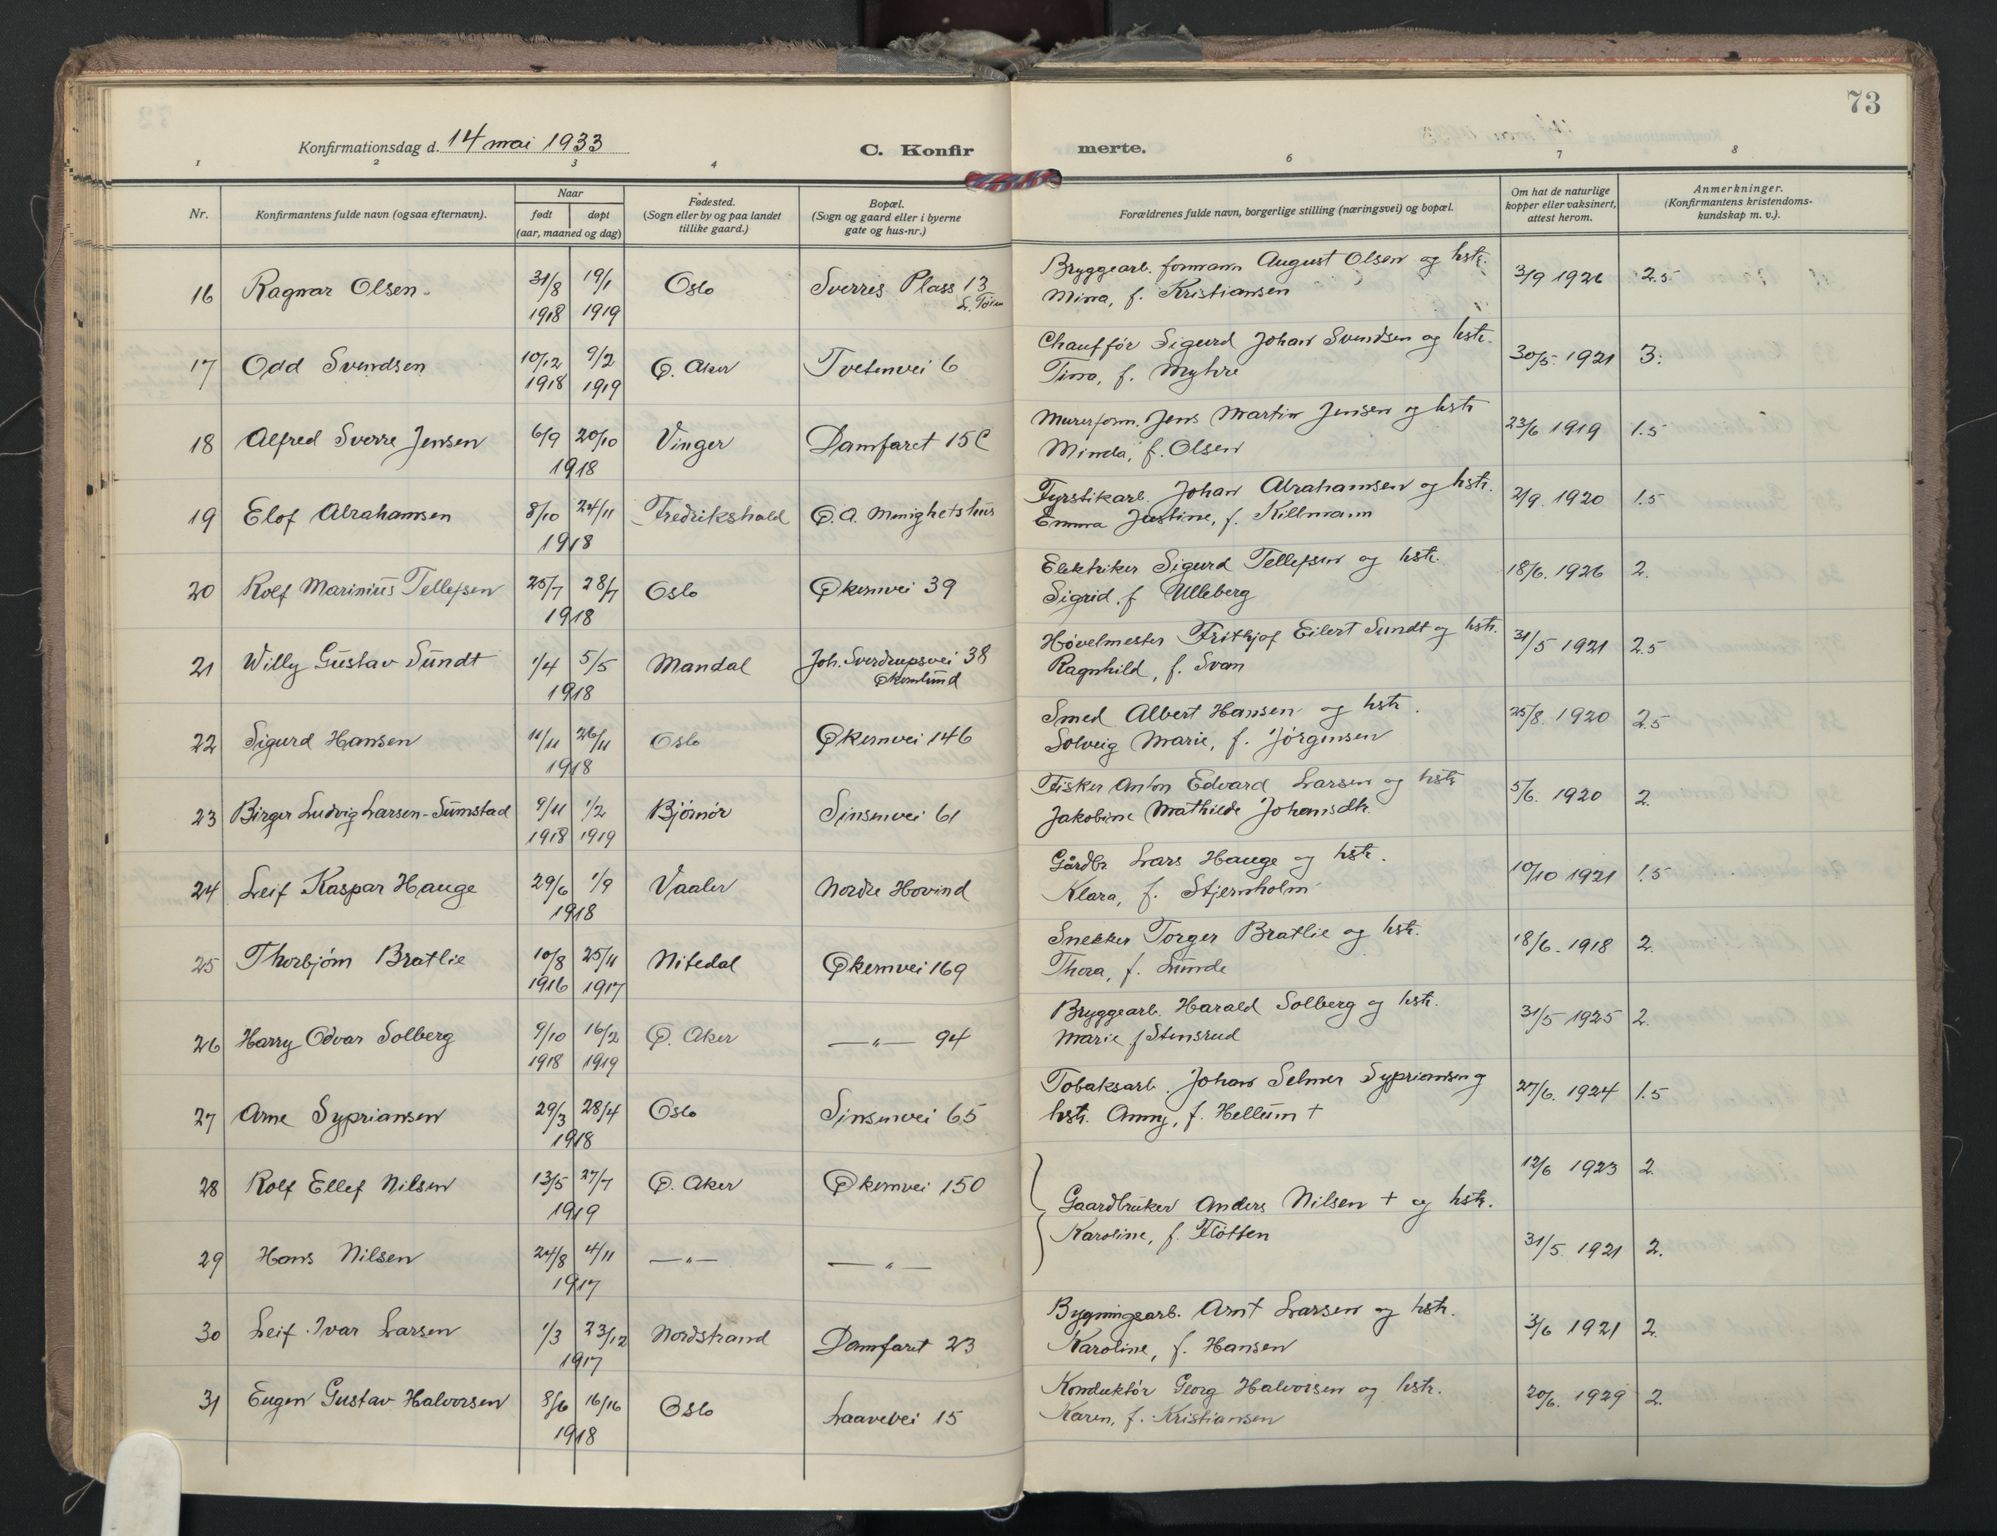 73
Konfirmationsdag d. 14 mai 1933
C. Konfirmerte.
1 2 3 4 6 7 8
Nr. Konfirmantens fulde navn (ogsaa efternavn). Naar født døpt (aar, maaned og dag) Fødested. (Sogn eller by og paa landet tillike gaard.) Bopæl. (Sogn og gaard eller i byerne gate og hus-nr.) Forældrenes fulde navn, borgerlige stilling (næringsvei) og bopæl. Om hat de naturlige kopper eller vaksinert, attest herom. Anmerkninger. (Konfirmantens kristendomskundskap m. v.).
16 Ragnar Olsen 31/8 1918 19/1 1919 Oslo Sverres Plass 13 L. Tøien Bryggearb. formann August Olsen og hstr. Minna, f. Kristiansen 3/9 1926 2.5
17 Odd Svendsen 10/12 1918 9/2 1919 Ø. Aker Tvetenvei 6 Chauffør Sigurd Johan Svendsen og hstr. Tina, f. Myhre 30/5. 1921 3.
18 Alfred Sverre Jensen 6/9 20/10 1918 Vinger Damfaret 15C Murerform. Jens Martin Jensen og hstr Minda, f. Olsen 23/6 1919 1.5
19 Elof Abrahamsen 8/10 24/11 1918 Fredrikshald Ø.A. Menighetshus Fyrstikarb. Johan Abrahamsen og hstr. Emma Justine, f. Killmann 2/9. 1920 1.5
20 Rolf Marinius Tellefsen 25/7 28/7 1918 Oslo Økernvei 39 Elektriker Sigurd Tellefsen og hstr. Sigrid. f Ulleberg 18/6. 1926 2.
21 Willy Gustav Sundt 1/4 5/5 1918 Mandal Joh. Sverdrupsvei 38 Økernlund Høvelmester Frithjof Eilert Sundt og hstr. Ragnhild, f. Svan 31/5 1921 2.5
22 Sigurd Hansen 11/11 26/11 1918 Oslo Økernvei 146 Smed Albert Hansen og hstr. Solveig Marie, f. Jørgensen 25/8. 1920 2.5
23 Birger Ludvig Larsen-Sumstad 9/11 1918 1/2 1919 Bjørnør Sinsenvei 61 Fisker Anton Edvard Larsen og hstr Jakobine Mathilde Johansdtr. 5/6. 1920 2.
24 Leif Kaspar Hauge 29/6 1/9 1918 Vaaler Nordre Hovind Gårdbr Lars Hauge og hstr. Klara, f. Stjernholm 10/10 1921 1.5
25 Thorbjørn Bratlie 10/8 1916 25/11 1917 Nitedal Økernvei 169 Snekker Torger Bratlie og hstr. Thora, f. Lunde 18/6. 1918 2.
26 Harry Odvar Solberg 9/10 1918 16/2 1919 Ø. Aker —"— 94 Bryggearb. Harald Solberg og hstr. Marie f Stensrud 31/5 1925 2.
27 Arne Sypriansen 29/3 28/4 1918 Oslo Sinsenvei 65 Tobaksarb. Johan Selmer Sypriansen og hstr. Anny, f. Hellum + 27/6. 1924 1.5
28 Rolf Ellef Nilsen 13/5 27/7 1919 Ø. Aker Økernvei 150 Gaardbruker Anders Nilsen + og hstr. Karoline, f. Fløtten 12/6 1923 2.
29 Hans Nilsen 24/8 4/11 1917 —"— —"— 31/5. 1921 2.
30 Leif Ivar Larsen 1/3 23/12 1917 Nordstrand Damfaret 23 Bygningsarb. Arnt Larsen og hstr. Karoline, f. Hansen 3/6 1921 2.
31 Eugen Gustav Halvorsen 8/6 16/16 1918 Oslo Laavevei 15 Konduktør Georg Halvorsen og hstr. Karen, f. Kristiansen 20/6. 1929 2.